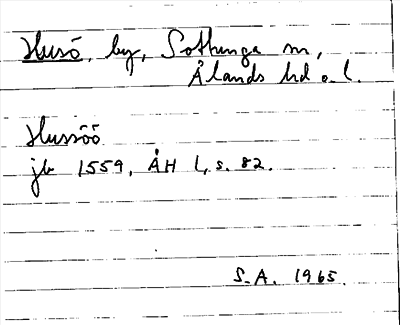 Husö, by, Sottunga sn,
Ålands hd o. l.
Hussöö
jb 1559, ÅH 1, s. 82.
S.A. 1965.